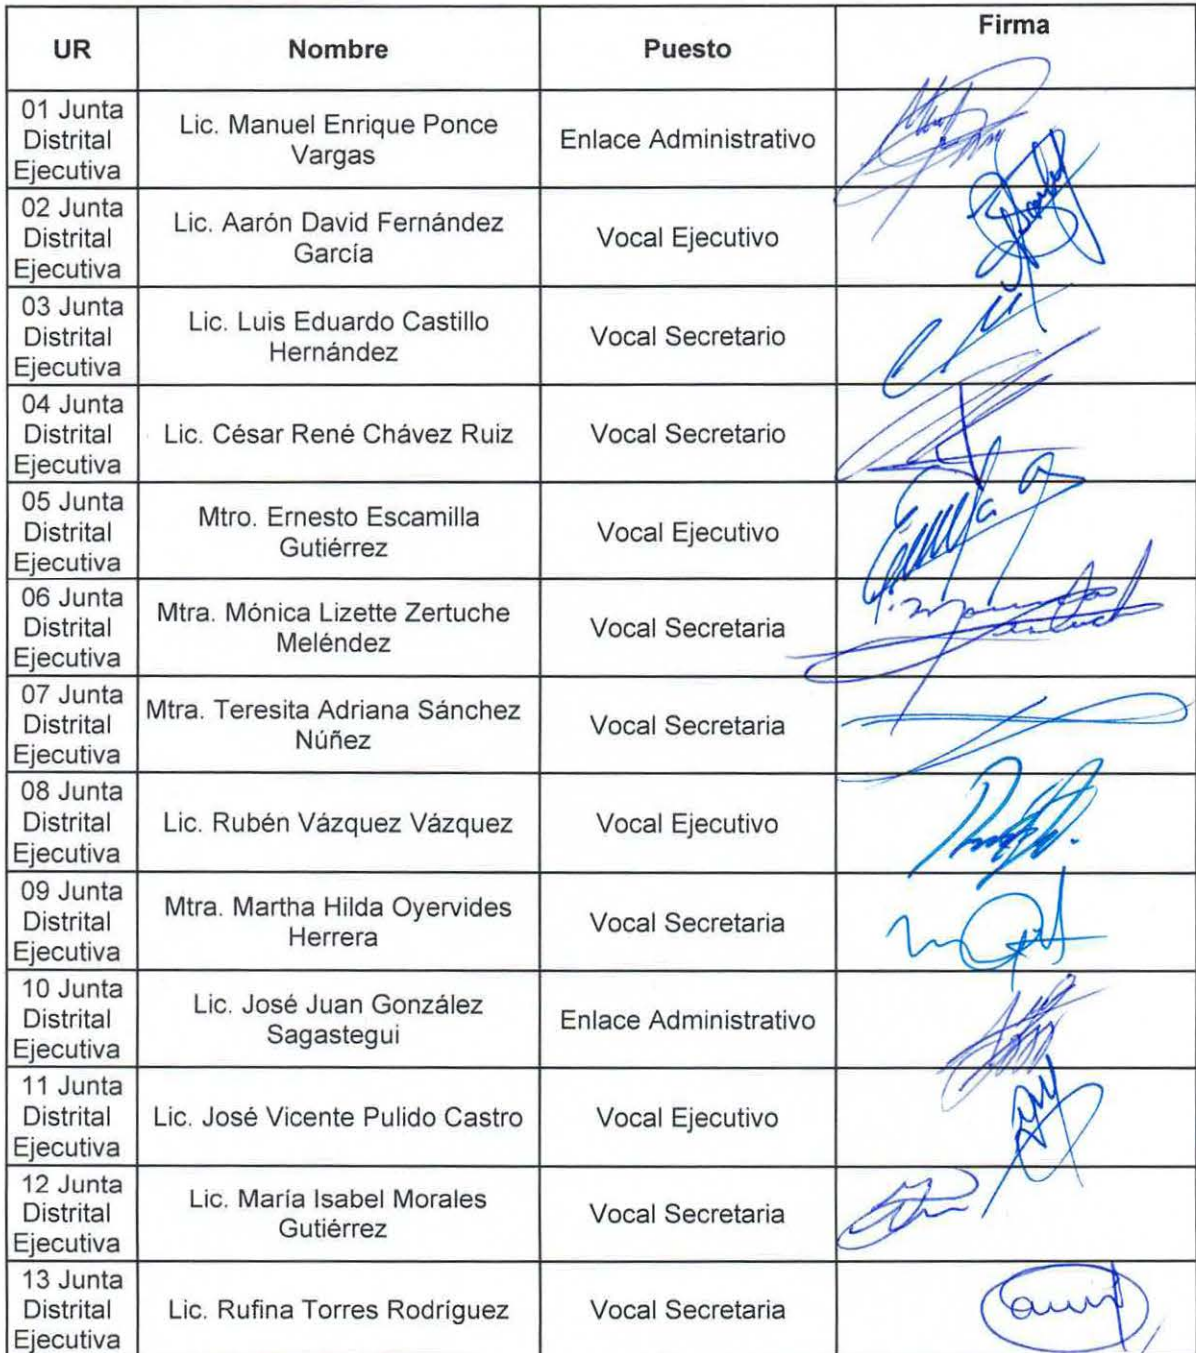 UR Nombre Puesto Firma
01 Junta
Distrital
Ejecutiva
Lic. Manuel Enrique Ponce
Vargas
Enlace Administrativo
02 Junta
Distrital
Ejecutiva
Lic. Aarón David Fernández
García
Vocal Ejecutivo
03 Junta
Distrital
Ejecutiva
Lic. Luis Eduardo Castillo
Hernández
Vocal Secretario
04 Junta
Distrital
Ejecutiva
Lic. César René Chávez Ruiz
Vocal Secretario
05 Junta
Distrital
Ejecutiva
Mtro. Ernesto Escamilla
Gutiérrez
Vocal Ejecutivo
06 Junta
Distrital
Ejecutiva
Mtra. Mónica Lizette Zertuche
Meléndez
Vocal Secretaria
07 Junta
Distrital
Ejecutiva
Mtra. Teresita Adriana Sánchez
Núñez
Vocal Secretaria
08 Junta
Distrital
Ejecutiva
Lic. Rubén Vázquez Vázquez
Vocal Ejecutivo
09 Junta
Distrital
Ejecutiva
Mtra. Martha Hilda Oyervides
Herrera
Vocal Secretaria
10 Junta
Distrital
Ejecutiva
Lic. José Juan González
Sagastegui
Enlace Administrativo
11 Junta
Distrital
Ejecutiva
Lic. José Vicente Pulido Castro
Vocal Ejecutivo
12 Junta
Distrital
Ejecutiva
Lic. María Isabel Morales
Gutiérrez
Vocal Secretaria
13 Junta
Distrital
Ejecutiva
Lic. Rufina Torres Rodríguez
Vocal Secretaria